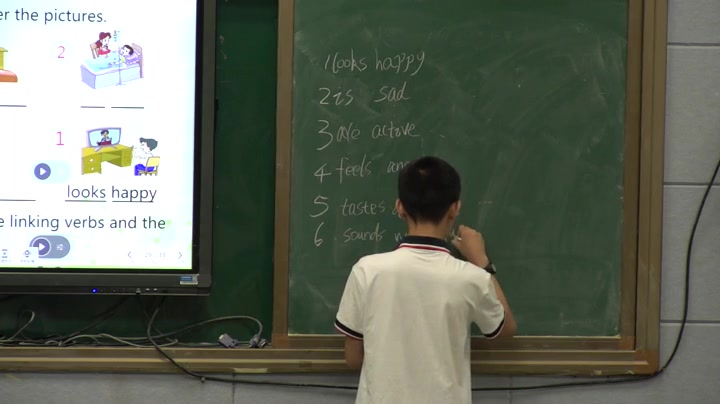 er the pictures.
2
1
looks happy
e linking verbs and the
1 looks happy
2 is sad
3 are active
4 feels
5 tastes
6 sounds